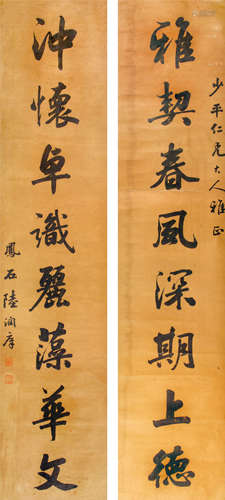 少平仁兄大人雅正
雅契春風深期上德
沖懷卓識麗藻華文
鳳石陸潤庠